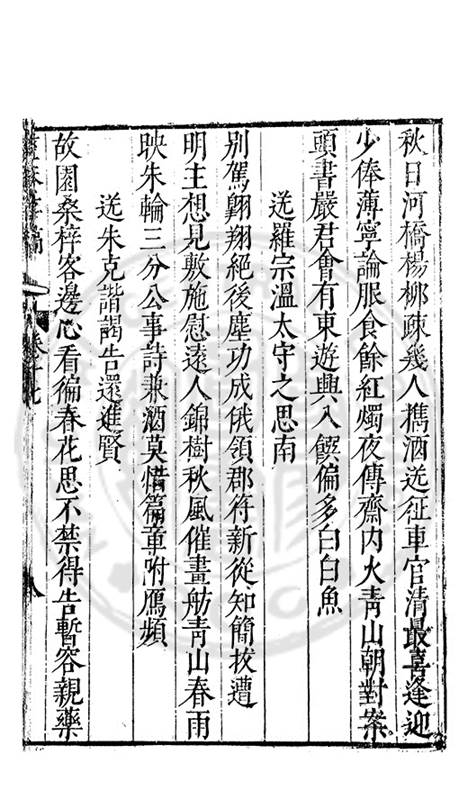 秋日河橋楊柳疎幾人擕酒送征車官清最喜逢迎
少俸薄寧論服食餘紅燭夜傳齋内火青山朝對案
頭書嚴君會有東遊興入饌偏多白白魚
送羅宗溫太守之思南
别駕翺翔絕後塵功成俄領郡符新從知簡拔遭
明主想見敷施慰遠人錦樹秋風催畫舫青山春雨
映朱輪三分公事詩兼酒莫惜篇章附鴈頻
送朱克諧謁告還進賢
故園桑梓客邊心看徧春花思不禁得告暫容親藥
卷十七
八